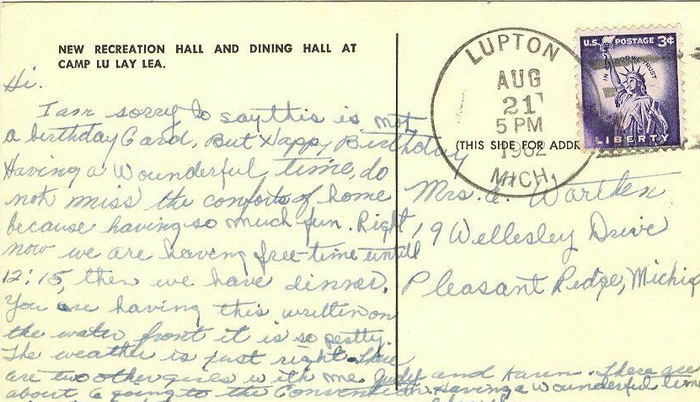 NEW RECREATION HALL AND DINING HALL AT
CAMP LU LAY LEA.
LUPTON
AUG
21
5 PM
1962
MICH.
U.S. POSTAGE 3¢
IN GOD WE TRUST
LIBERTY
(THIS SIDE FOR ADDR
Hi.
I am sorry to say this is not
a birthday Card, But Happy Birthday
Having a Wounderful time, do
not miss the comforts of home
because having so much fun. Right
now we are having free-time untill
12:15, then we have dinner.
You are having this written on
the water front it is so pretty.
The weather is just right. There
are two other girls with me Judy and Karen. There are
about 6 going to the Convention. Having a wounderful time
Mrs. E. Warthen
19 Wellesley Drive
Pleasant Ridge, Michig